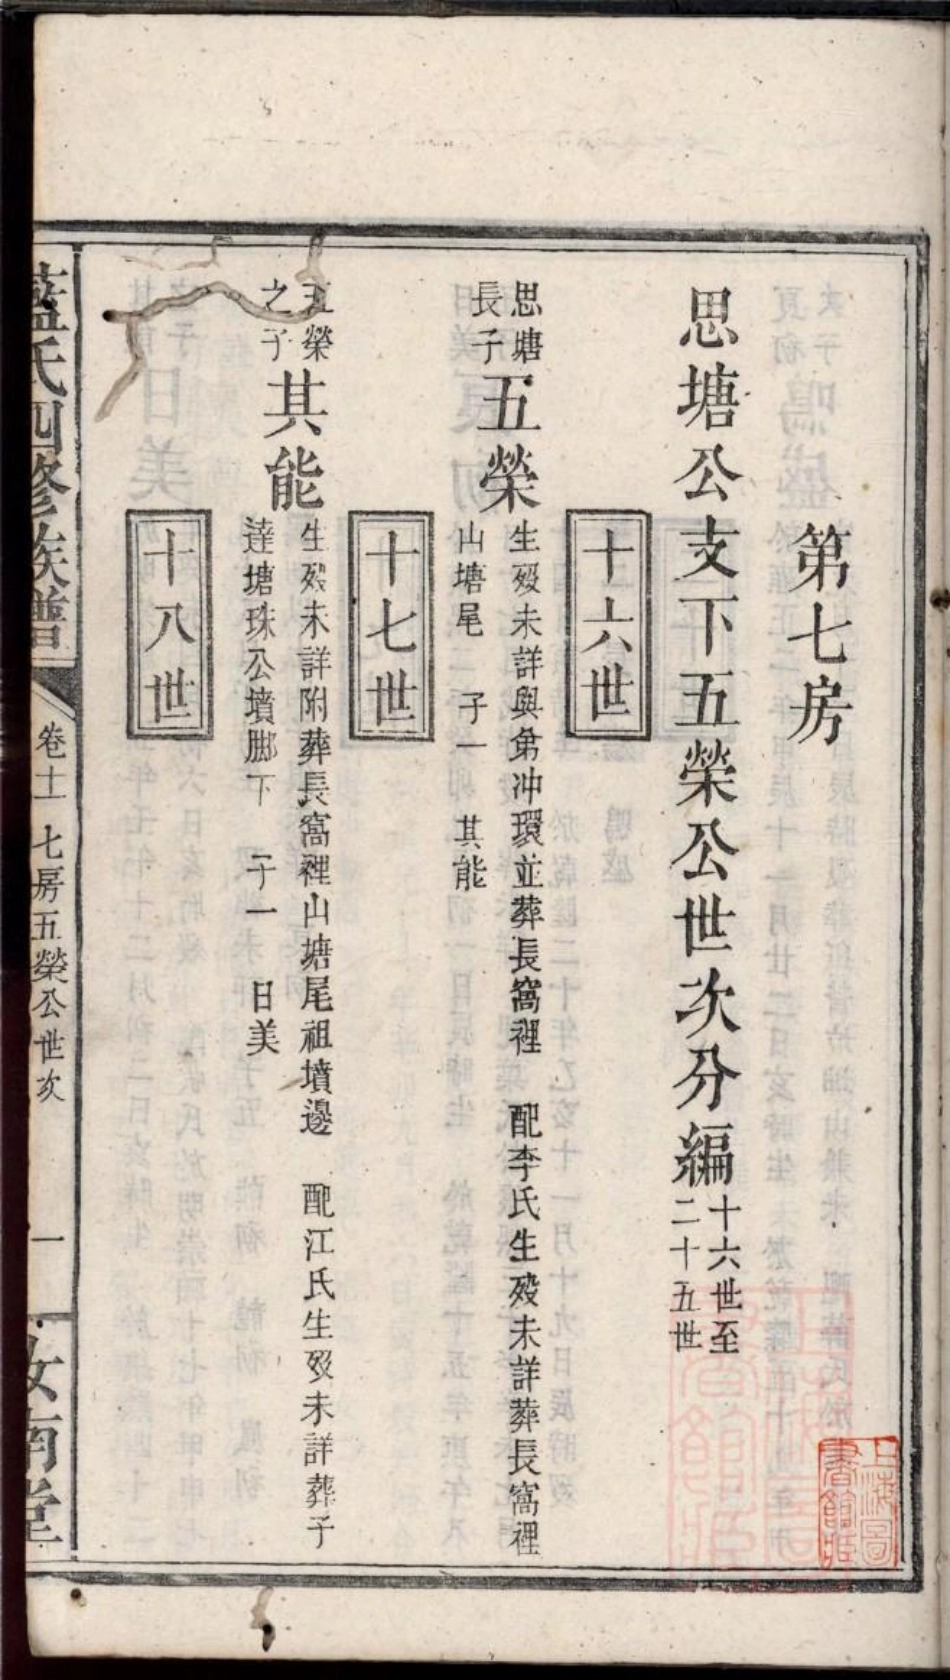 第七房
思塘公支下五榮公世次分編十六世至
二十五世
十六世
思塘
長子
五榮
生殁未詳與弟冲環並葬長窩裡 配李氏生殁未詳葬長窩裡
山塘尾 子一 其能
十七世
五榮
之子
其能
生殁未詳附葬長窩裡山塘尾祖墳邊 配江氏生殁未詳葬子
達塘珠公墳脚下 子一 日美
十八世
藍氏四修族譜
卷十一 七房五榮公世次
一
汝南堂
上海圖
書館藏